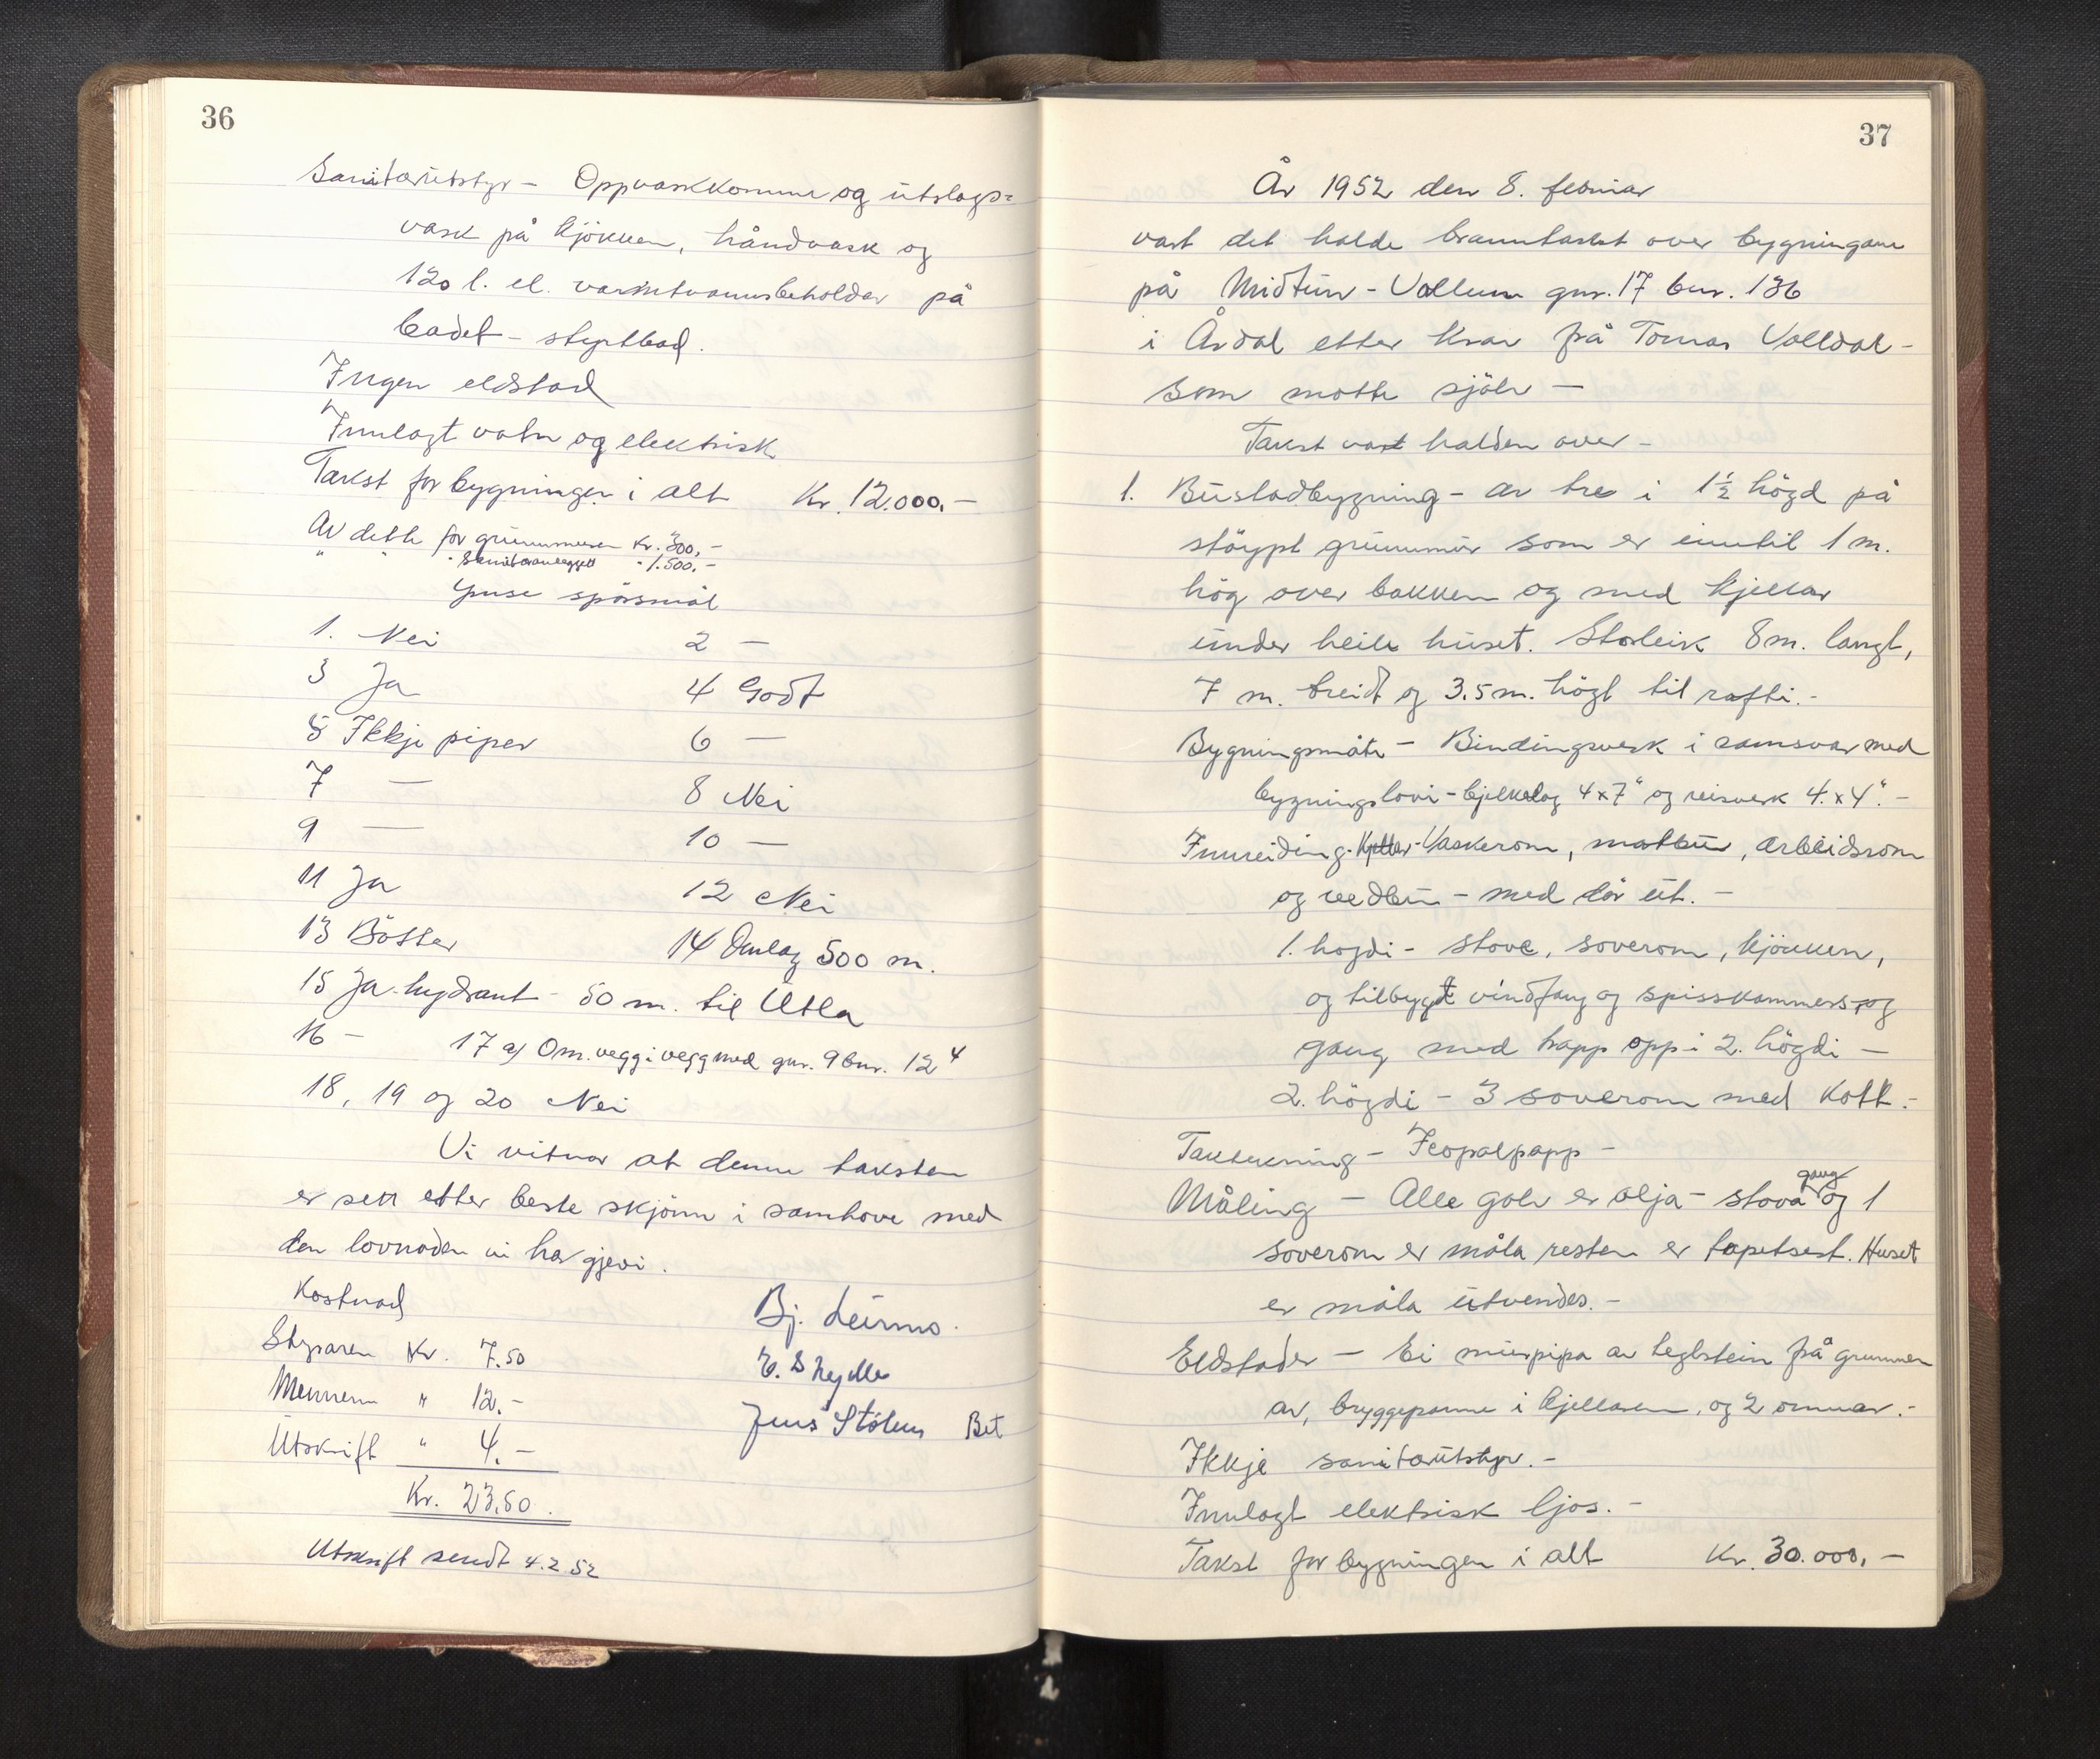 36
Sanitærutstyr - Oppvaskkomme og utslags=
vask på kjökken, håndvask og
120 l. el. varmtvannsbeholder på
badet - styrtbad.
Ingen eldstad
Innlagt vatn og elektrisk
Takst for bygningen i alt Kr. 12.000.-
Av dette for grunnmuren Kr. 300,-
" " " Sanitæranlegget " 1.500.-
Ymse spörsmål
1. Nei 2 -
3 Ja 4 Godt
5 Ikkje piper 6 -
7 - 8 Nei
9 - 10 -
11 Ja 12 Nei
13 Bötter 14 Omlag 500 m.
15 Ja-hydrant - 50 m. til Utla
16 - 17 a) 0 m. vegg i vegg med gnr. 9 bnr. 12 4
18, 19 og 20 Nei
Vi vitnar at denne taksten
er sett etter beste skjönn i samhove med
den lovnaden vi har gjevi.
Kostnad
Bj. Leirmo.
Styraren Kr. 7.50
Mennene " 12.-
Jens Stölen Bet
Utskrift " 4.-
Kr. 23.50.
Utskrift sendt 4.2.52
37
År 1952 den 8. februar
vart det halde branntakst over bygningane
på Midtun - Vollum gnr. 17 bnr. 136
i Årdal etter krav frå Tomas Volldal -
som motte sjölv -
Takst vart halden over -
1. Bustadbygning - av tre i 1½ högd på
stöypt grunnmur som er inntil 1 m.
hög over bakken og med kjellar
under heile huset. Storleik 8 m. langt,
7 m. breidt og 3.5 m. högt til rafti.-
Bygningsmåte - Bindingsverk i samsvar med
bygningslovi - bjelkelag 4x7" og reisverk 4x4".-
Innreiding - Kjellar - Vaskerom, matbur, arbeidsrom
og vedbu - med dör ut.-
1. högdi - stove, soverom, kjökken,
og tilbygt vindfang og spisskammers - og
gang med trapp opp i 2. högdi -
2. högdi - 3 soverom med kott.-
Taktekning - Icopalpapp -
Måling - Alle golv er olja - stova gang og 1
soverom er måla resten er tapetsert. Huset
er måla utvendes.-
Eldstader - Ei murpipa av teglstein frå grunnen
av, bryggepanne i kjellaren, og 2 omnar.-
Ikkje sanitærutstyr.-
Innlagt elektrisk ljos.-
Takst for bygningen i alt Kr. 30.000,-